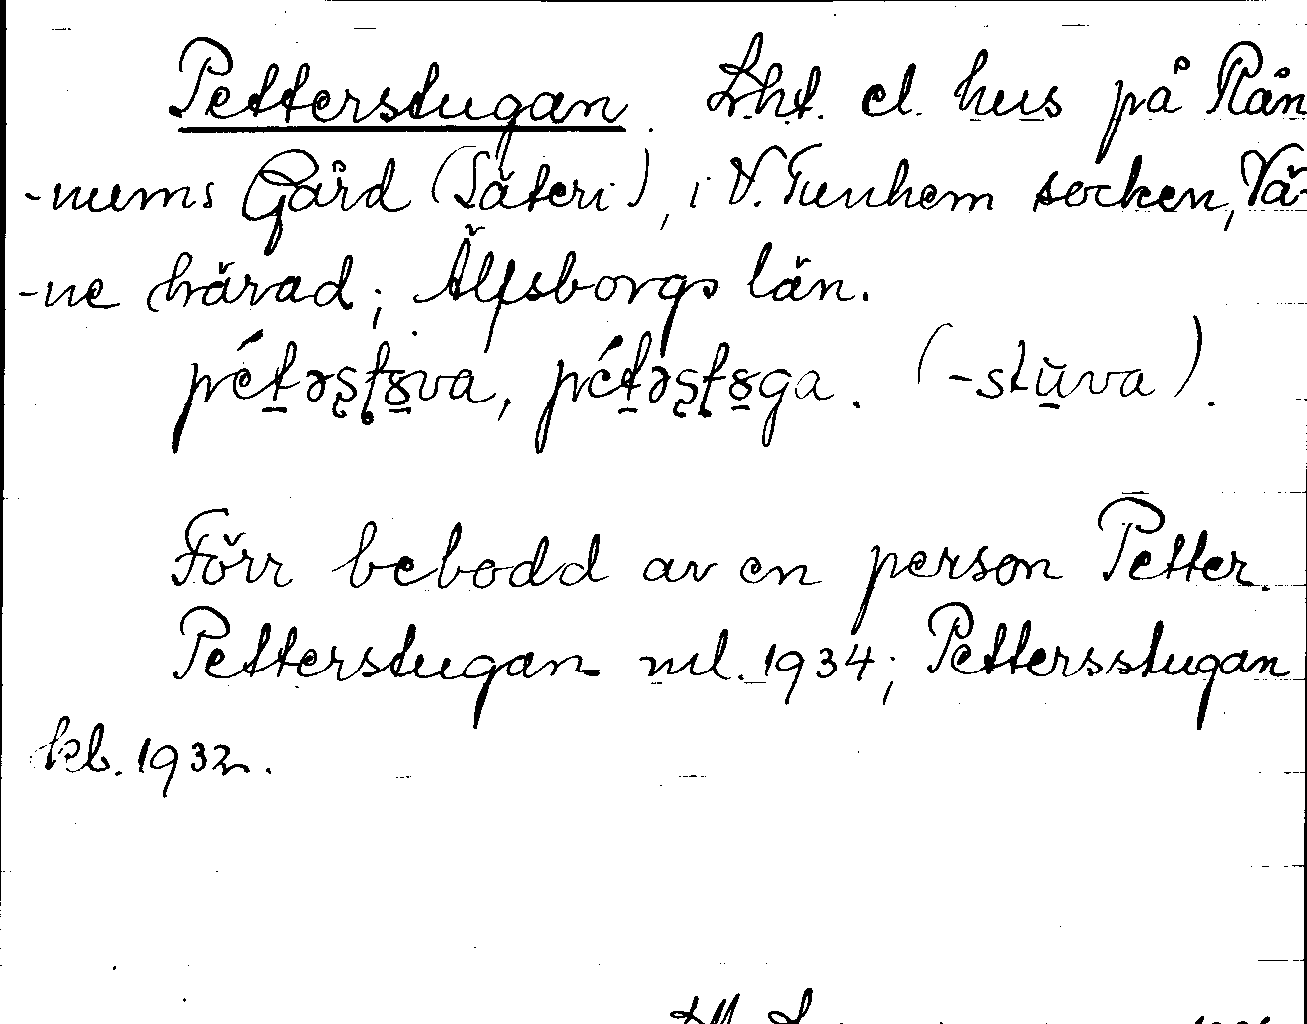 Petterstugan. Lht. el. hus på Rån
-nums Gård (Säteri), i V. Tunhem socken, Vä-
-ne härad; Älfsborgs län.
pét̲əʂʈȣ̲va, pét̲əʂʈȣ̲ga. (-stu̲va).
Förr bebodd av en person Petter.
Petterstugan ml. 1934; Pettersstugan
kb. 1932.